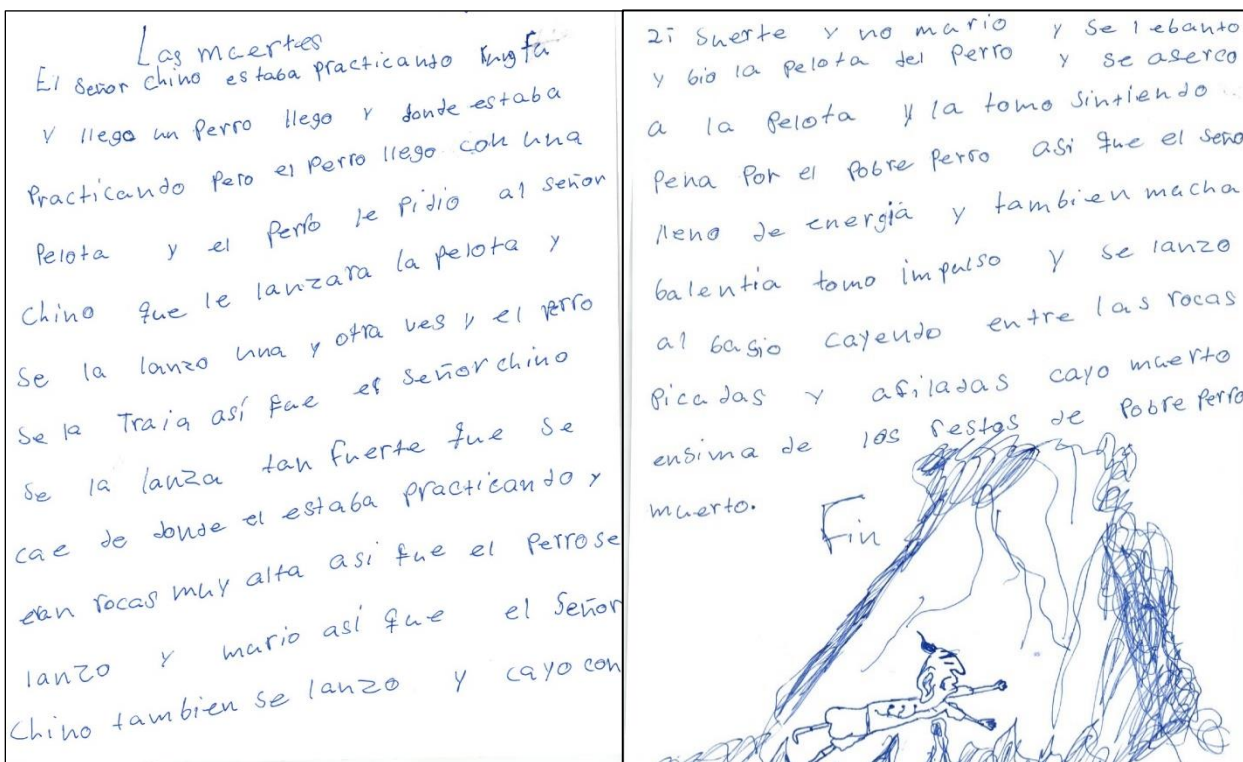 Las muertes
El señor chino estaba practicando kung fu
y llego un Perro llego y donde estaba
Practicando pero el perro llego con una
Pelota y el perro le Pidio al señor
Chino que le lanzara la pelota y
Se la lanzo una y otra ves y el perro
Se la Traia así que el señor chino
Se la lanza tan fuerte que se
cae de donde el estaba practicando y
eran rocas muy alta asi que el Perro se
lanzo y murio así que el señor
Chino tambien se lanzo y cayo con
2i Suerte y no murio y se lebanto
y bio la pelota del perro y se aserco
a la Pelota y la tomo sintiendo
pena Por el Pobre Perro asi que el seño
lleno de energia y tambien mucha
balentia tomo impulso y se lanzo
al basio cayendo entre las rocas
Picadas y afiladas cayo muerto
ensima de los restos de Pobre perro
muerto.
Fin